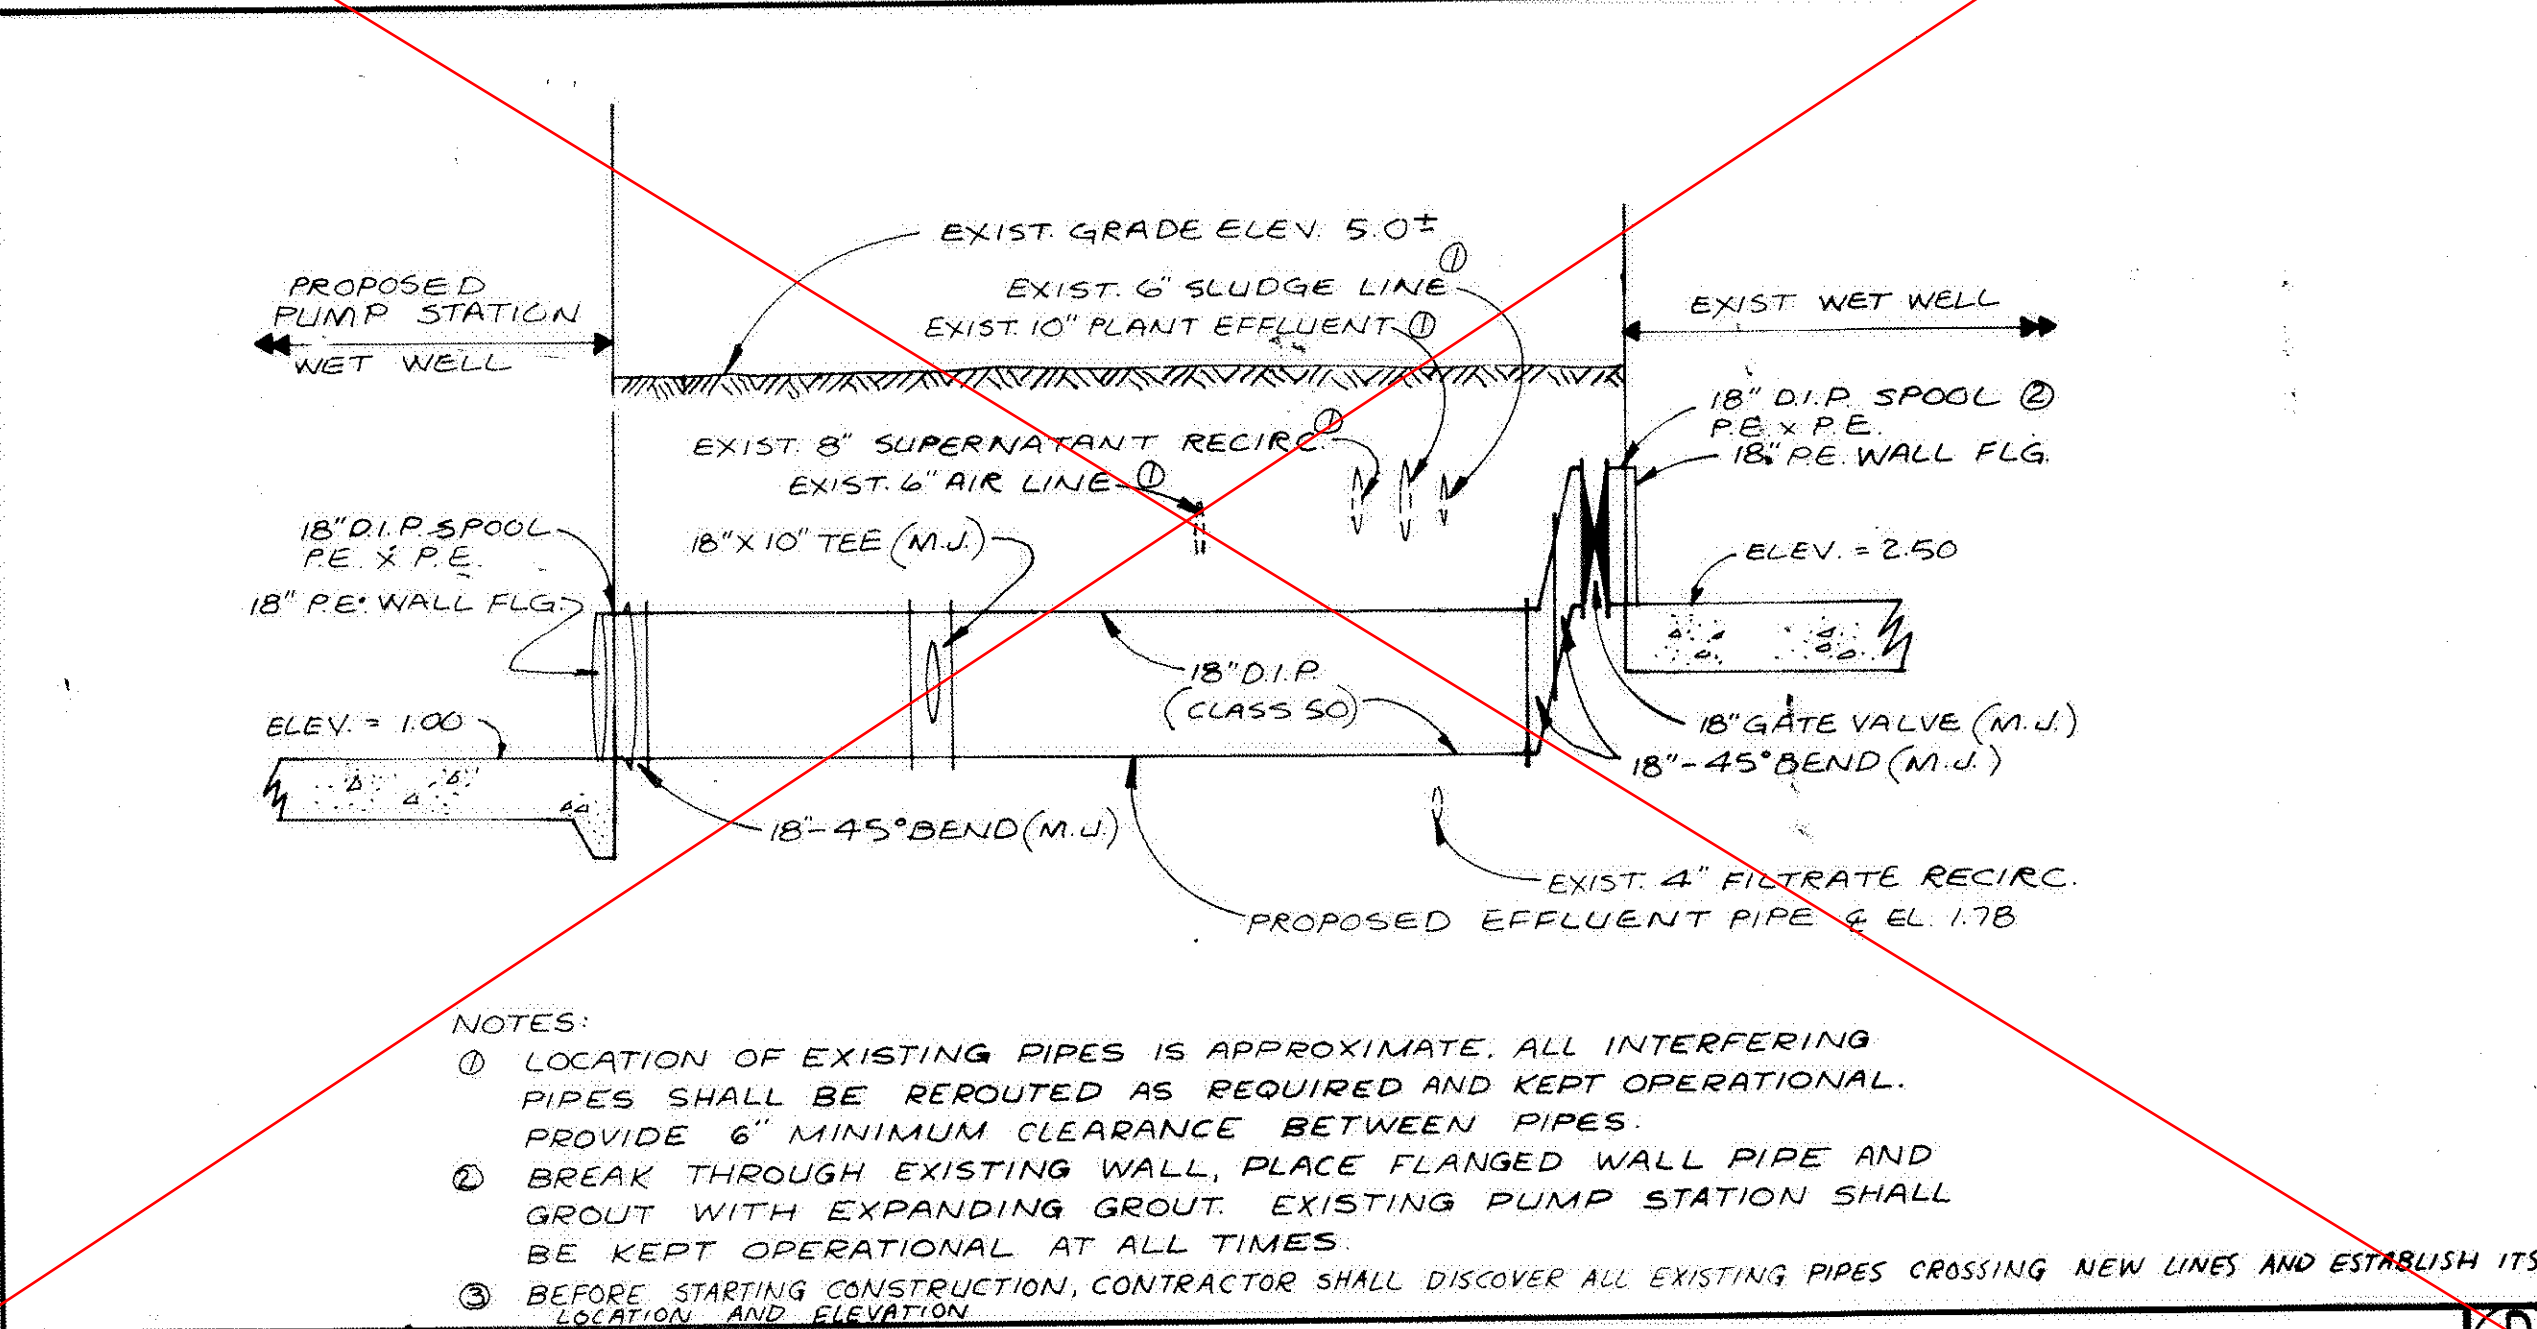 EXIST. GRADE ELEV. 5.0±
①
EXIST. 6" SLUDGE LINE
EXIST. 10" PLANT EFFLUENT ①
PROPOSED
PUMP STATION
WET WELL
EXIST WET WELL
18" D.I.P. SPOOL ②
P.E. x P.E.
18" P.E. WALL FLG.
EXIST. 8" SUPERNATANT RECIRC. ①
EXIST. 6" AIR LINE ①
18" D.I.P. SPOOL
P.E. X P.E.
18" P.E. WALL FLG.
18" X 10" TEE (M.J.)
ELEV. = 2.50
18" D.I.P.
(CLASS 50)
ELEV. = 1.00
18" GATE VALVE (M.J.)
18"-45° BEND (M.J.)
18"-45° BEND (M.J.)
EXIST. 4" FILTRATE RECIRC.
PROPOSED EFFLUENT PIPE ℄ EL. 1.78
NOTES:
① LOCATION OF EXISTING PIPES IS APPROXIMATE. ALL INTERFERING
PIPES SHALL BE REROUTED AS REQUIRED AND KEPT OPERATIONAL.
PROVIDE 6" MINIMUM CLEARANCE BETWEEN PIPES.
② BREAK THROUGH EXISTING WALL, PLACE FLANGED WALL PIPE AND
GROUT WITH EXPANDING GROUT. EXISTING PUMP STATION SHALL
BE KEPT OPERATIONAL AT ALL TIMES.
③ BEFORE STARTING CONSTRUCTION, CONTRACTOR SHALL DISCOVER ALL EXISTING PIPES CROSSING NEW LINES AND ESTABLISH ITS
LOCATION AND ELEVATION